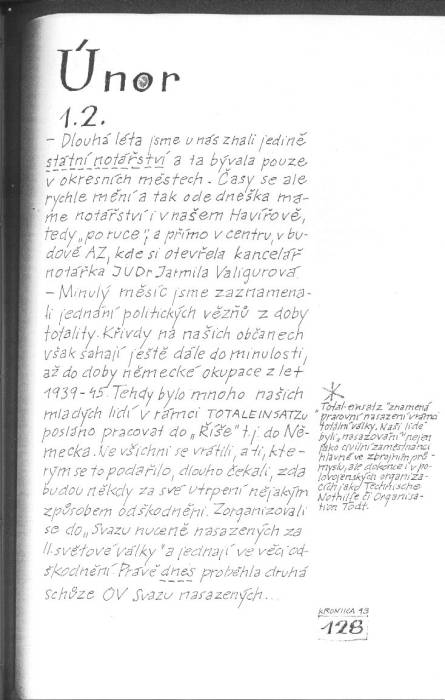 Únor
1.2.
– Dlouhá léta jsme u nás znali jedině
státní notářství a ta bývala pouze
v okresních městech. Časy se ale
rychle mění a tak ode dneška má-
me notářství i v našem Havířově,
tedy „po ruce", a přímo v centru, v bu-
dově AZ, kde si otevřela kancelář
notářka JUDr Jarmila Valigurová
– Minulý měsíc jsme zaznamena-
li jednání politických vězňů z doby
totality. Křivdy na našich občanech
však sahají ještě dále do minulosti,
až do doby německé okupace z let
1939-45. Tehdy bylo mnoho našich
mladých lidí v rámci TOTALEINSATZU
posláno pracovat do „Říše" t.j. do Ně-
mecka. Ne všichni se vrátili, a ti, kte-
rým se to podařilo, dlouho čekali, zda
budou někdy za své utrpení nějakým
způsobem odškodněni. Zorganizovali
se do „Svazu nuceně nasazených za
II. světové války" a jednají ve věci od-
škodnění. Právě dnes proběhla druhá
schůze OV Svazu nasazených...
*
"Total-einsatz" znamená
pracovní nasazení v rámci
totální války. Naši lidé
byli „nasazováni" nejen
jako civilní zaměstnanci
hlavně ve zbrojním prů-
myslu, ale dokonce i v po-
lovojenských organiza-
cích jako Technische
Nothilfe či Organisa-
tion Todt.
KRONIKA 93
128